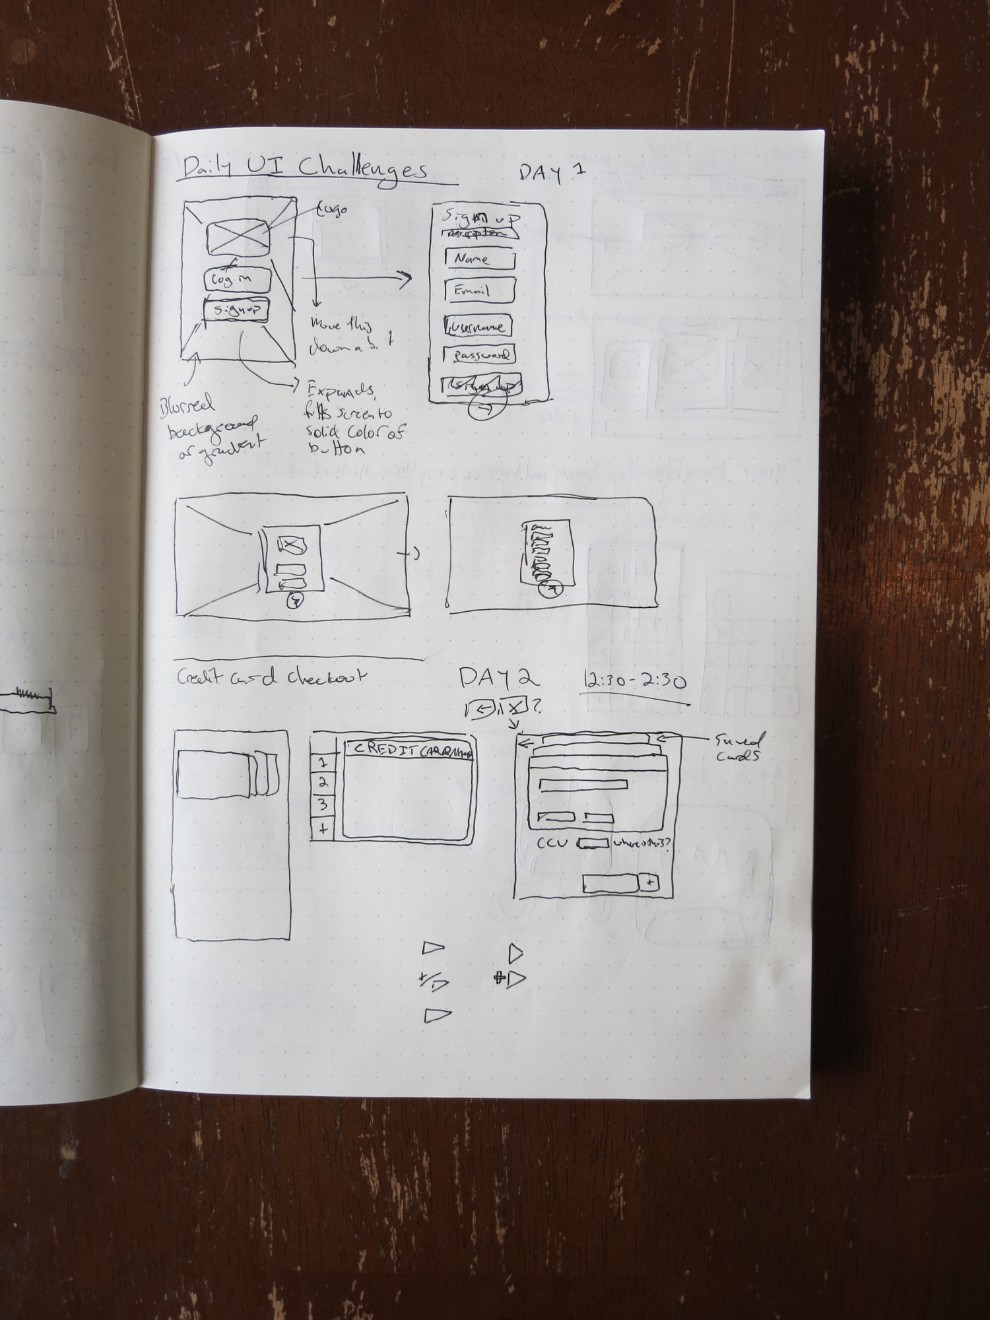 Daily UI Challenges
DAY 1
Logo
Log in
Sign up
Move this
down a bit
Blurred
background
or gradient
Expands,
fills screen to
solid color of
button
Sign up
Name
Email
Username
Password
Credit card checkout
DAY 2
12:30-2:30
?
CREDIT CARD
1
2
3
+
Saved
cards
CCV
where is this?
+